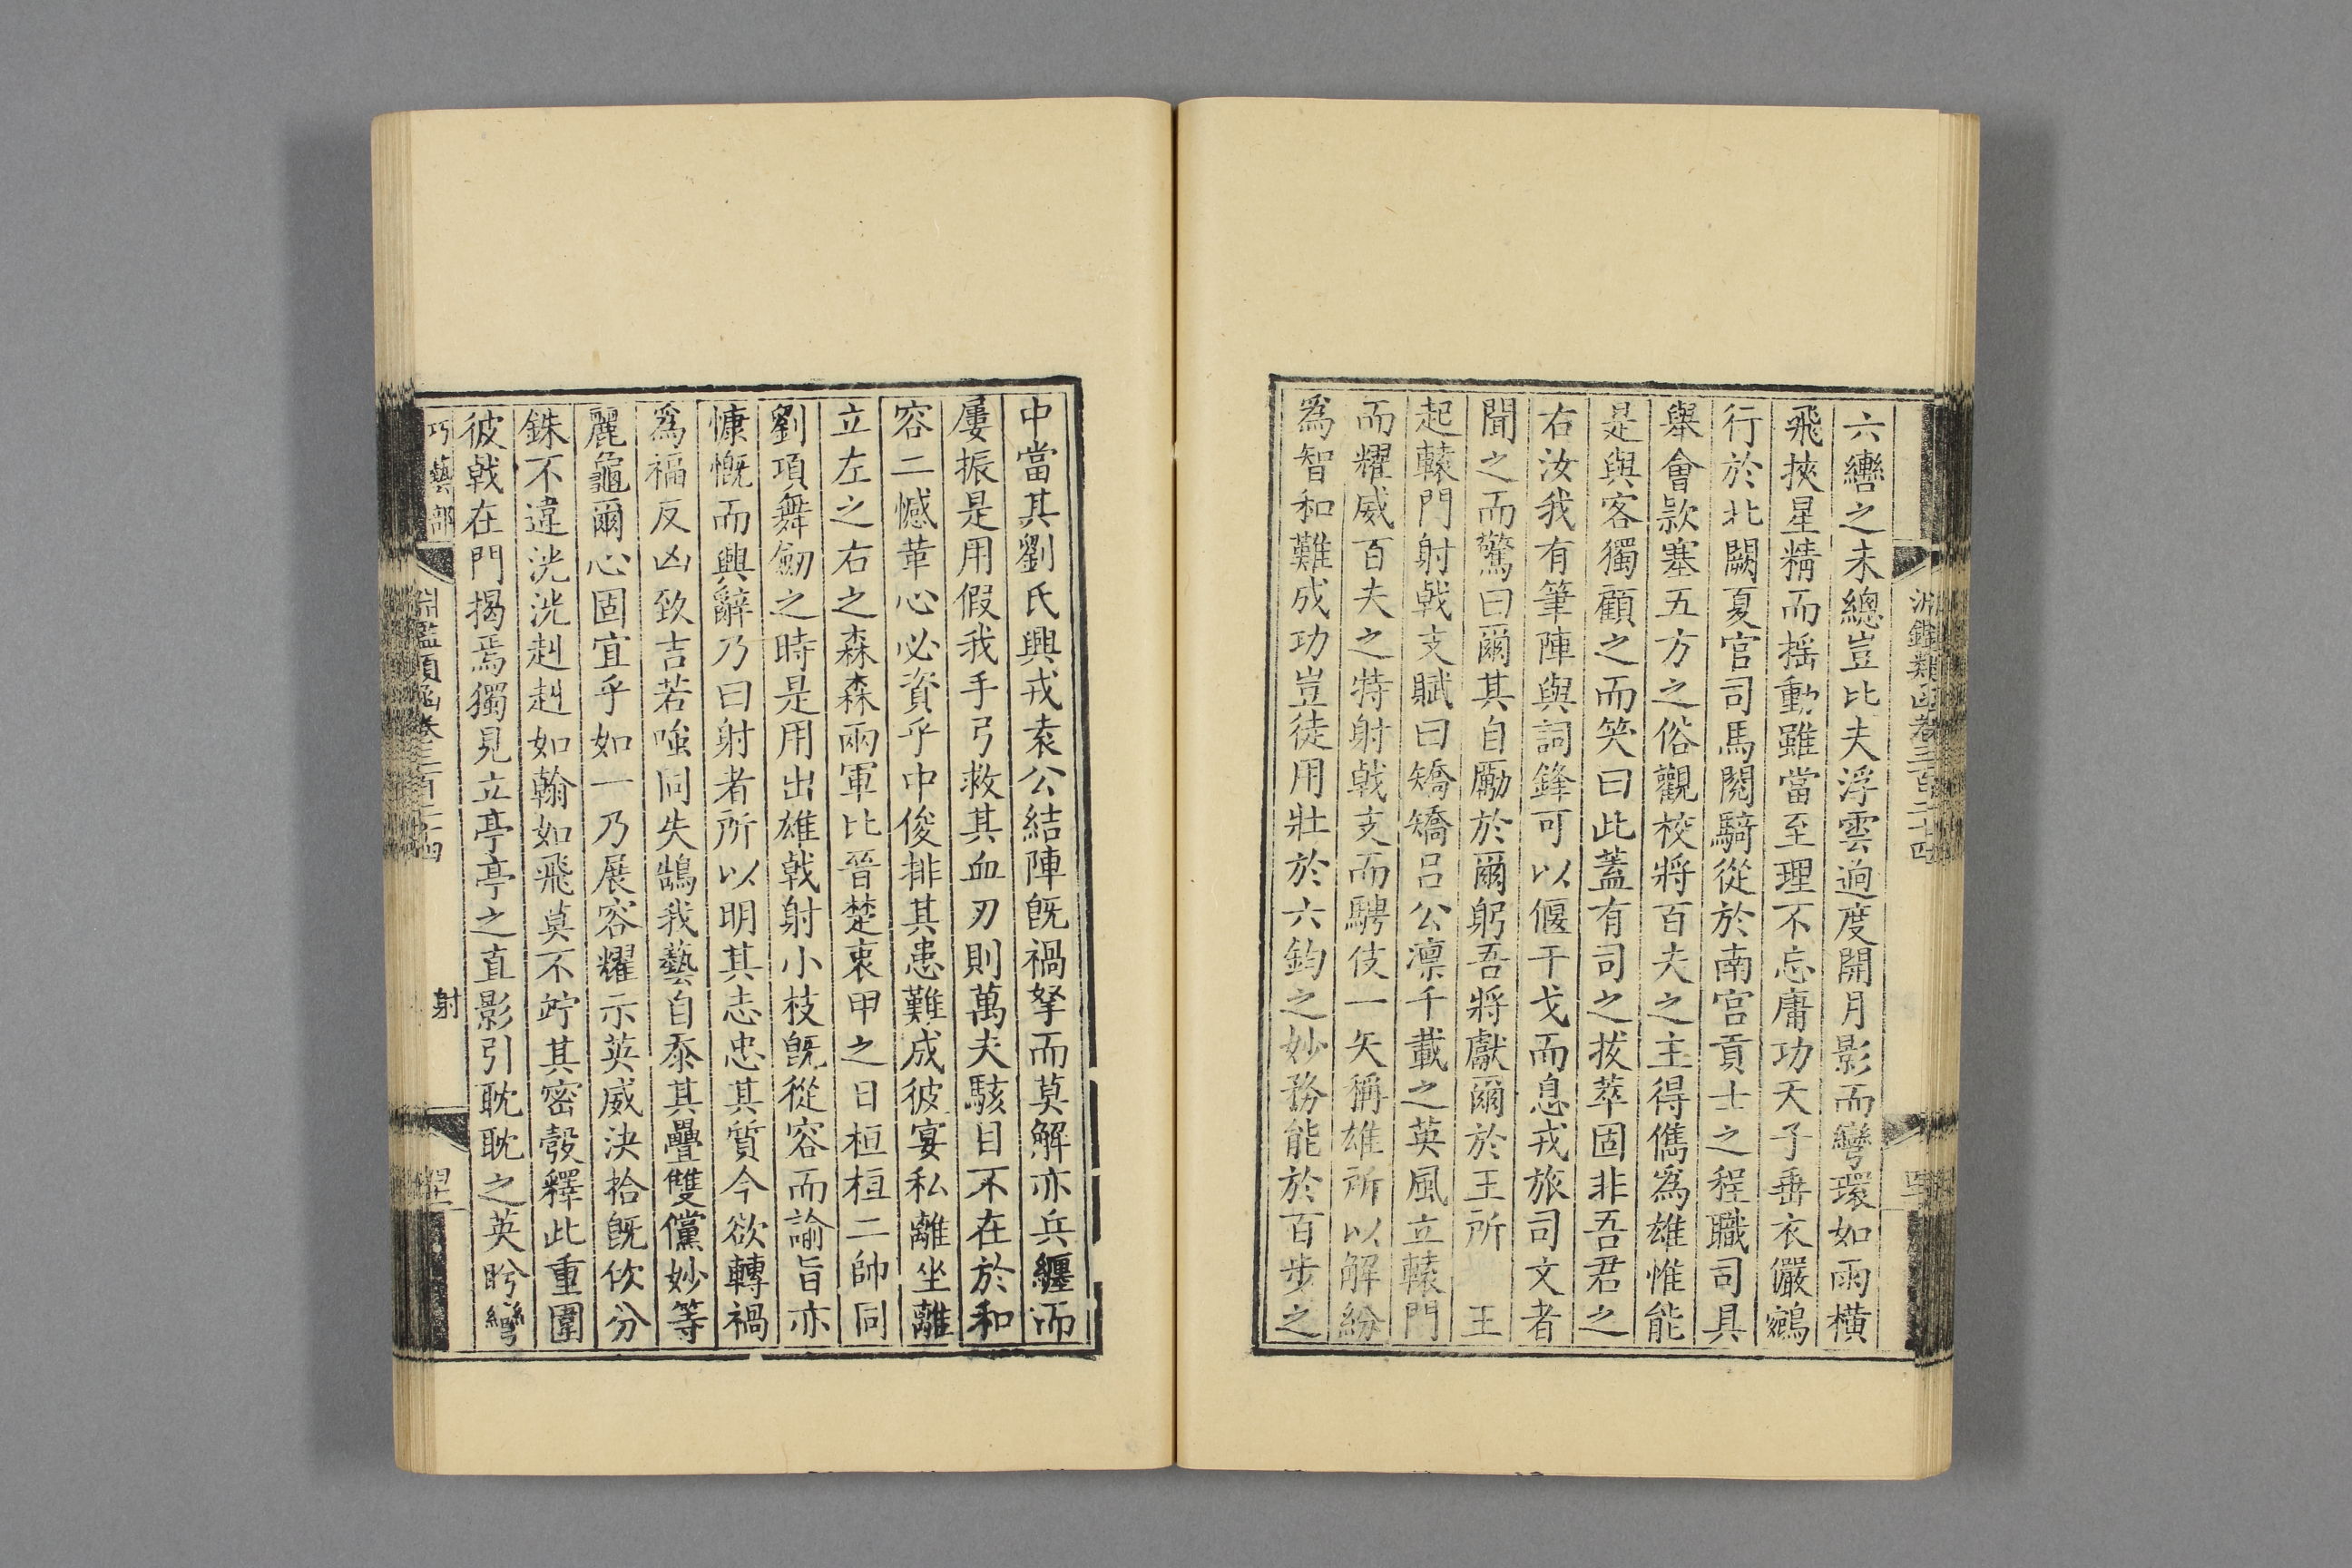 六轡之未總豈比夫浮雲逈度開月影而彎環如雨橫
飛挾星精而搖動雖當至理不忘庸功天子垂衣儼鵷
行於北闕夏官司馬閱騎從於南宮貢士之程職司具
舉會款塞五方之俗觀校將百夫之主得儁爲雄惟能
是與客獨顧之而笑曰此蓋有司之拔萃固非吾君之
右汝我有筆陣與詞鋒可以偃干戈而息戎旅司文者
聞之而驚曰爾其自勵於爾躬吾將獻爾於王所　王
起轅門射戟支賦曰矯矯呂公凛千載之英風立轅門
而耀威百夫之特射戟支而騁伎一矢稱雄所以解紛
爲智和難成功豈徒用壯於六鈞之妙務能於百步之
中當其劉氏興戎袁公結陣旣禍拏而莫解亦兵纏而
屢振是用假我手弓救其血刃則萬夫駭目不在於和
容二憾革心必資乎中俊排其患難成彼宴私離坐離
立左之右之森森兩軍比晉楚衷甲之日桓桓二帥同
劉項舞劒之時是用出雄戟射小枝旣從容而諭旨亦
慷慨而興辭乃曰射者所以明其志忠其質今欲轉禍
爲福反凶致吉若嗤同失鵠我藝自忝其疊雙儻妙等
麗龜爾心固宜乎如一乃展容耀示英威決拾旣佽分
銖不違洸洸赳赳如翰如飛莫不竚其密彀釋此重圍
彼戟在門揭焉獨見立亭亭之直影引耽耽之英眄彎
巧藝部
淵鑑類函卷三百二十四
射